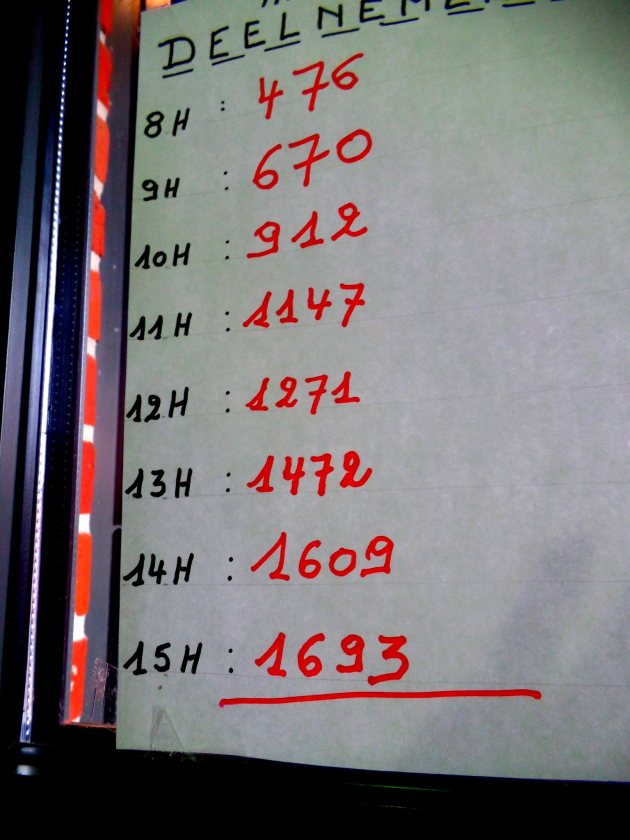 8H : 476
9H : 670
10H : 912
11H : 1147
12H : 1271
13H : 1472
14H : 1609
15H : 1693